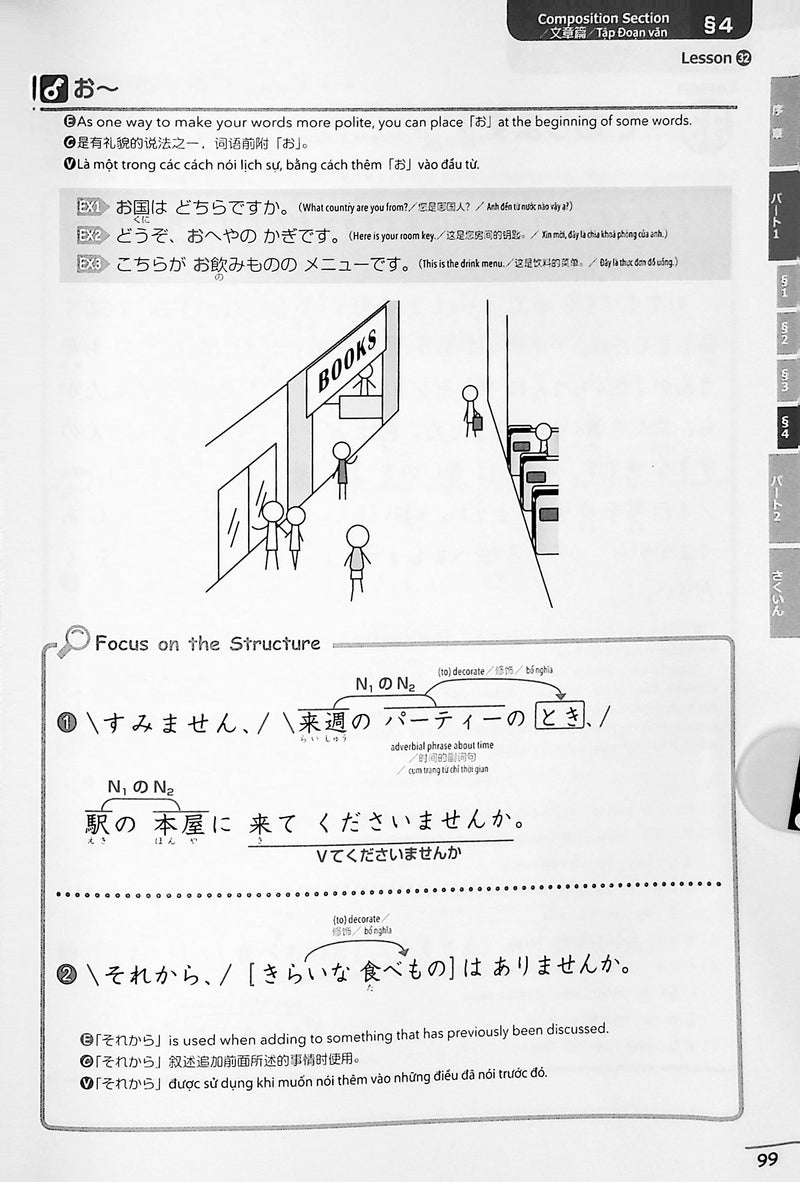 Composition Section
／文章篇／Tập Đoạn văn
§4
Lesson 32
お～
ⒺAs one way to make your words more polite, you can place「お」at the beginning of some words.
Ⓒ是有礼貌的说法之一，词语前附「お」。
ⓋLà một trong các cách nói lịch sự, bằng cách thêm「お」vào đầu từ.
EX1 お国は どちらですか。(What country are you from?／您是哪国人？／Anh đến từ nước nào vậy ạ?)
くに
EX2 どうぞ、おへやの かぎです。(Here is your room key.／这是您房间的钥匙。／Xin mời, đây là chìa khoá phòng của anh.)
EX3 こちらが お飲みものの メニューです。(This is the drink menu.／这是饮料的菜单。／Đây là thực đơn đồ uống.)
の
BOOKS
Focus on the Structure
(to) decorate／修饰／bổ nghĩa
N₁ の N₂
❶ \すみません、/ \来週の パーティーの とき、/
らいしゅう
adverbial phrase about time
／时间的副词句
／cụm trạng từ chỉ thời gian
N₁ の N₂
駅の 本屋に 来て くださいませんか。
えき ほん や き
Vてくださいませんか
(to) decorate／
修饰／bổ nghĩa
❷ \それから、/ [きらいな 食べもの]は ありませんか。
た
Ⓔ「それから」is used when adding to something that has previously been discussed.
Ⓒ「それから」叙述追加前面所述的事情时使用。
Ⓥ「それから」được sử dụng khi muốn nói thêm vào những điều đã nói trước đó.
序章
パート1
§1
§2
§3
§4
パート2
さくいん
99